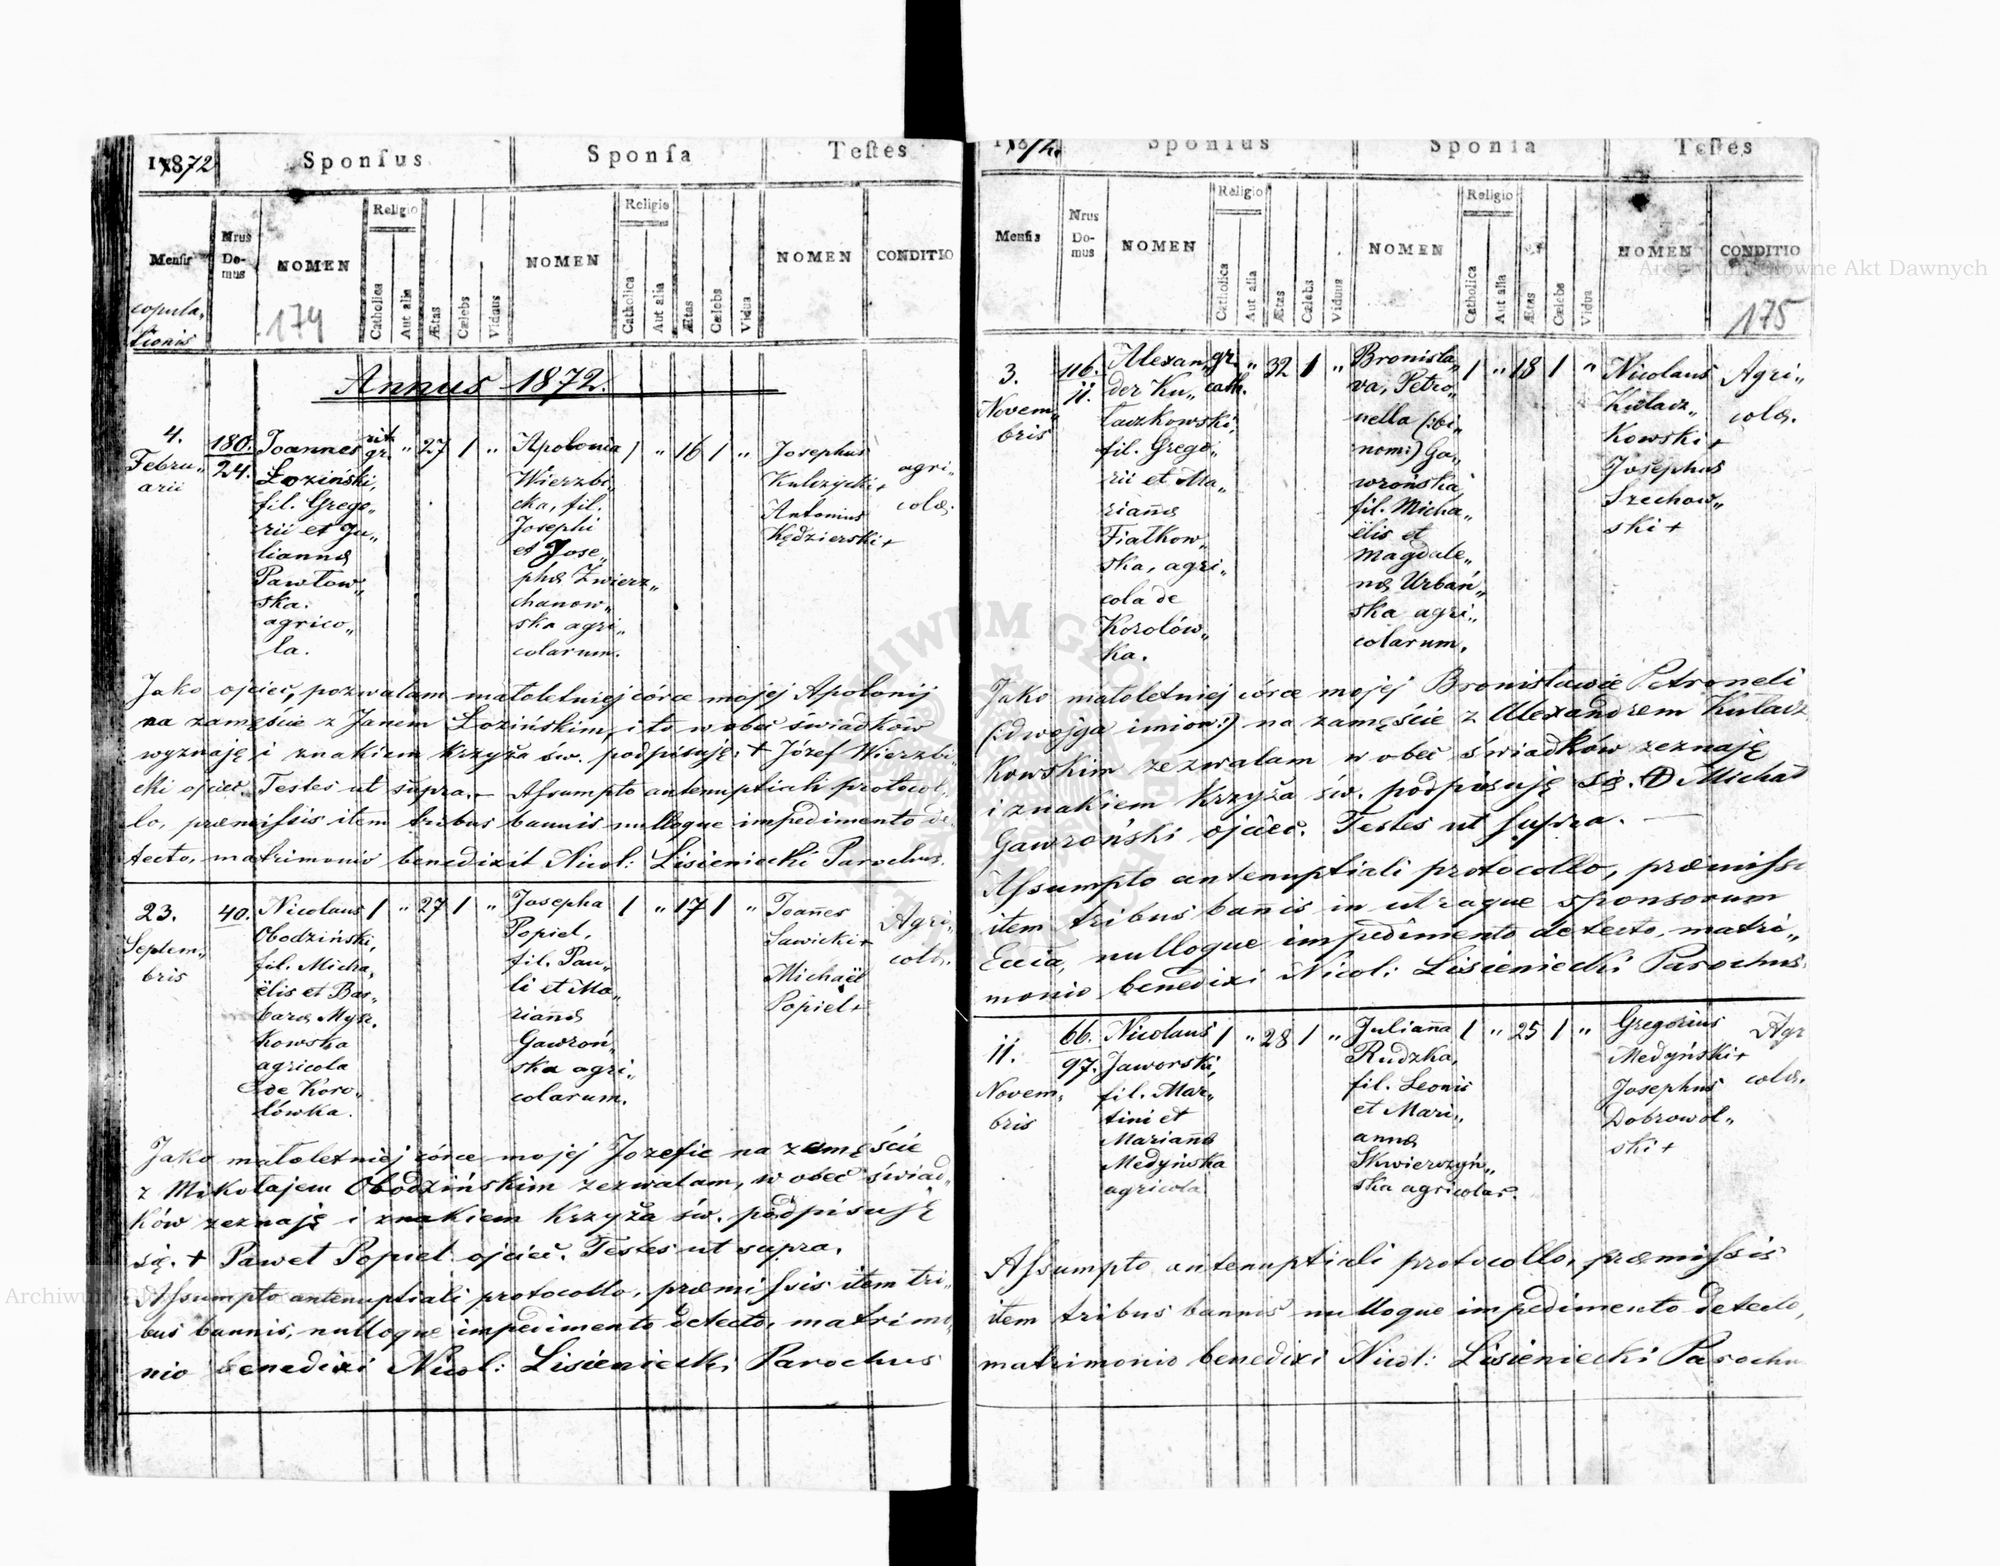 1872
Sponſus
Sponſa
Teſtes
Menſis
copula,
tionis
Nrus
Do-
mus
NOMEN
Religio
Catholica
Aut alia
Ætas
Cœlebs
Viduus
NOMEN
Religio
Catholica
Aut alia
Ætas
Cœlebs
Vidua
NOMEN
CONDITIO
174
Annus 1872.
4.
Febru„
arii
180.
24.
Joannes
Łoziński,
fil. Grego„
rii et Ju„
liannæ
Pawłow„
ska.
agrico„
la.
rit.
gr.
"
27
1
"
Apolonia
Wierzbi„
cka, fil.
Josephi
et Jose„
phæ Zwierz„
chanow„
ska agri„
colarum.
1
"
16
1
"
Josephus
Kulczycki+
Antonius
Kędzierski+
agri„
colæ.
Jako ojciec, pozwalam małoletniej córce mojej Apolonij
na zamęście z Janem Łozińskim, i to w obec świadków
wyznaję i znakiem krzyża św. podpisuję: + Józef Wierzbi„
cki ojciec. Testes ut supra.— Aſsumpto antenuptiali protocol„
lo, præmiſsis item tribus bannis nulloque impedimento de„
tecto, matrimonio benedixit Nicol: Lisieniecki Parochus.
23.
Septem„
bris
40.
Nicolaus
Obodziński,
fil. Micha„
ëlis et Bar„
baræ Mysz„
kowska
agricola
de Koro„
lówka.
1
"
27
1
"
Josepha
Popiel,
fil. Pau„
li et Ma„
riannæ
Gawroń„
ska agri„
colarum.
1
"
17
1
"
Joannes
Sawicki+
Michaël
Popiel+
Agri„
colæ.
Jako małoletniej córce mojej Jozefie na zamęście
z Mikołajem Obodzińskim zezwalam, w obec świad„
ków zeznaję i znakiem krzyża św. podpisuję
się. + Paweł Popiel ojciec. Testes ut supra.
Aſsumpto antenuptiali protocollo, præmiſsis item tri„
bus bannis, nulloque impedimento detecto, matrimo„
nio benedixi Nicol: Lisieniecki Parochus
1872.
Sponſus
Sponſa
Teſtes
Menſis
Nrus
Do-
mus
NOMEN
Religio
Catholica
Aut alia
Ætas
Cœlebs
Viduus
NOMEN
Religio
Catholica
Aut alia
Ætas
Cœlebs
Vidua
NOMEN
CONDITIO
175
3.
Novem„
bris
116.
11.
Alexan„
der Ku„
laczkowski,
fil. Grego„
rii et Ma„
riannæ
Fiałkow„
ska, agri„
cola de
Korolów„
ka.
gr.
cath.
"
32
1
"
Bronisła„
va, Petro„
nella (:bi„
nom:) Ga„
wrońska
fil. Micha„
ëlis et
Magdale„
næ Urbań„
ska agri„
colarum.
1
"
18
1
"
Nicolaus
Kulacz„
kowski+
Josephus
Szechow„
ski+
Agri„
colæ.
Jako małoletniej córce mojej Bronisławie Petroneli
(:dwojga imion:) na zamęście z Alexandrem Kulacz
kowskim zezwalam w obec świadków zeznaję
i znakiem krzyża św. podpisuję się. + Michał
Gawroński ojciec. Testes ut supra.—
Aſsumpto antenuptiali protocollo, præmiſsi
item tribus bannis in utraque sponsorum
Eccia, nulloque impedimento detecto, matri„
monio benedixi Nicol: Lisieniecki Parochus.
11.
Novem„
bris
66.
97.
Nicolaus
Jaworski,
fil. Mar„
tini et
Mariannæ
Medyńska
agricola
1
"
28
1
"
Julianna
Rudzka,
fil. Leonis
et Mari„
annæ
Skwierczyń„
ska agricolar.
1
"
25
1
"
Gregorius
Medyński+
Josephus
Dobrowol„
ski+
Agr
colæ.
Aſsumpto antenuptiali protocollo, præmiſsis
item tribus bannis nulloque impedimento detecto,
matrimonio benedixi Nicol: Lisieniecki Parochu
Archiwum Główne Akt Dawnych
Archiwum Główne Akt Dawnych
ARCHIWUM GŁÓWNE AKT DAWNYCH